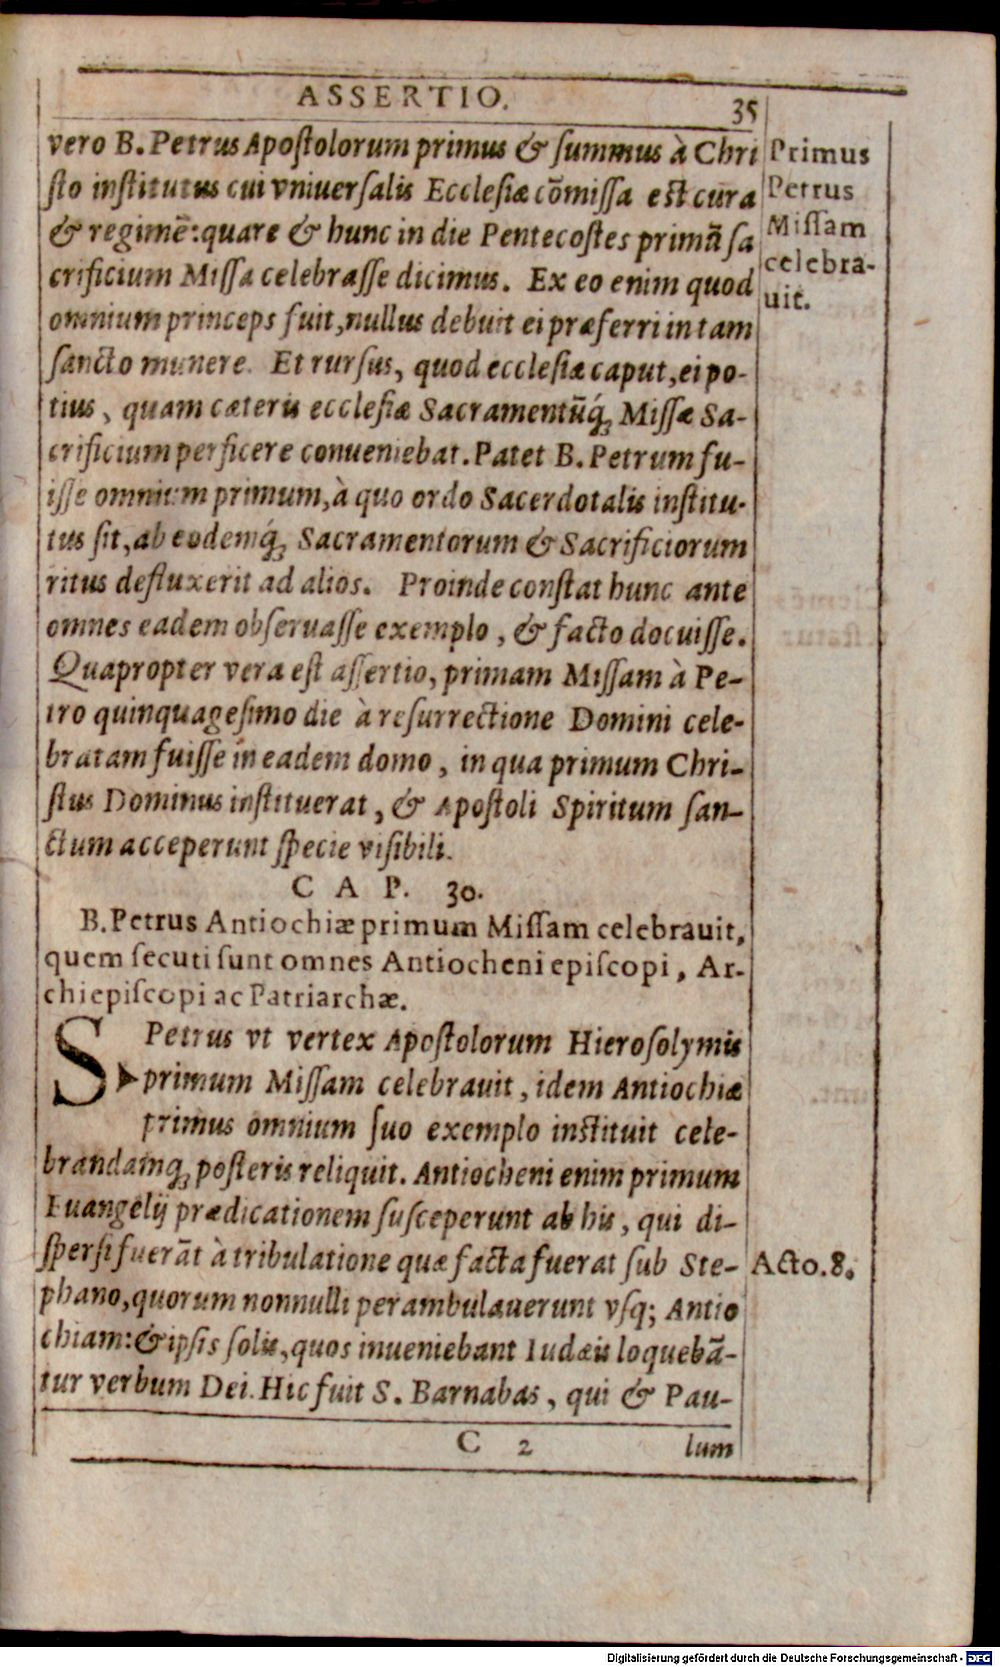 ASSERTIO. 35
vero B. Petrus Apostolorum primus & summus à Chri
sto institutus cui vniuersalis Ecclesiæ cõmissa est cura
& regimẽ: quare & hunc in die Pentecostes primũ sa
crificium Missa celebrasse dicimus. Ex eo enim quod
omnium princeps fuit, nullus debuit ei præferri in tam
sancto munere. Et rursus, quod ecclesiæ caput, ei po-
tius, quam cæteris ecclesiæ Sacramentũq́; Missæ Sa-
crificium perficere conueniebat. Patet B. Petrum fu-
isse omnium primum, à quo ordo Sacerdotalis institu-
tus sit, ab eodemq́; Sacramentorum & Sacrificiorum
ritus defluxerit ad alios. Proinde constat hunc ante
omnes eadem obseruasse exemplo, & facto docuisse.
Quapropter vera est assertio, primam Missam à Pe-
tro quinquagesimo die à resurrectione Domini cele-
bratam fuisse in eadem domo, in qua primum Chri-
stus Dominus instituerat, & Apostoli Spiritum san-
ctum acceperunt specie visibili.
Primus
Petrus
Missam
celebra-
uit.
CAP. 30.
B. Petrus Antiochiæ primum Missam celebrauit,
quem secuti sunt omnes Antiocheni episcopi, Ar-
chiepiscopi ac Patriarchæ.
S Petrus vt vertex Apostolorum Hierosolymis
primum Missam celebrauit, idem Antiochiæ
primus omnium suo exemplo instituit cele-
brandamq́; posteris reliquit. Antiocheni enim primum
Euangelij prædicationem susceperunt ab his, qui di-
spersi fuerãt à tribulatione quæ facta fuerat sub Ste-
phano, quorum nonnulli perambulauerunt vsq; Antio
chiam: & ipsis solis, quos inueniebant Iudæis loquebã-
tur verbum Dei. Hic fuit S. Barnabas, qui & Pau-
Acto. 8.
C 2 lum
Digitalisierung gefördert durch die Deutsche Forschungsgemeinschaft - DFG